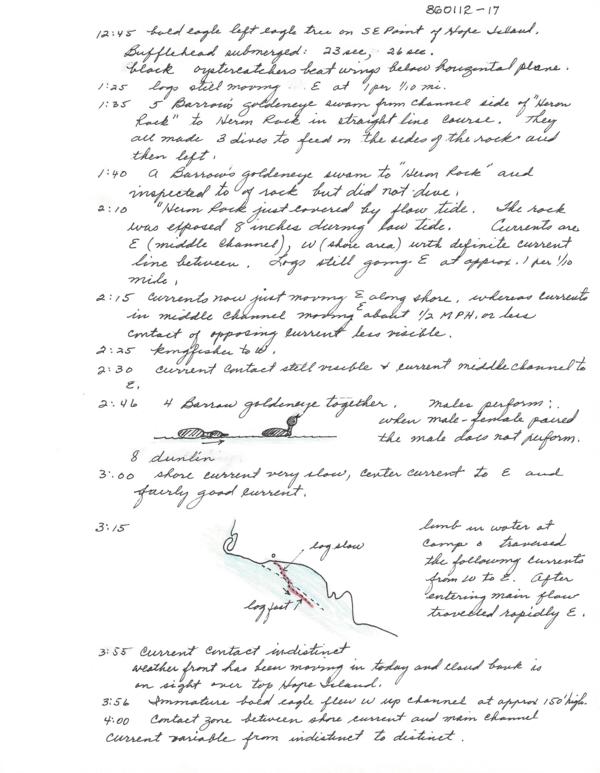 860112-17
12:45 bald eagle left eagle tree on SE Point of Hope Island.
Bufflehead submerged: 23 sec, 26 sec.
black oystercatchers beat wings below horizontal plane.
1:25 logs still moving E at 1 per 1/10 mi.
1:35 5 Barrow's goldeneye swam from channel side of "Heron
Rock" to Herm Rock in straight line course. They
all made 3 dives to feed on the sides of the rock and
then left.
1:40 A Barrow's goldeneye swam to "Heron Rock" and
inspected to of rock but did not dive.
2:10 "Heron Rock just covered by flow tide. The rock
was exposed 8 inches during low tide. Currents are
E (middle channel), W (shore area) with definite current
line between. Logs still going E at approx. 1 per 1/10
mile.
2:15 currents now just moving E along shore, whereas currents
in middle channel moving E about 1/2 MPH. or less
contact of opposing current less visible.
2:25 kingfisher to W.
2:30 current contact still visible & current middle channel to
E.
2:46 4 Barrow goldeneye together. males perform:
when male-female paired
the male does not perform.
8 dunlin
3:00 shore current very slow, center current to E and
fairly good current.
3:15
log slow
log fast
limb in water at
camp o traversed
the following currents
from W to E. After
entering main flow
travelled rapidly E.
3:55 Current contact indistinct
weather front has been moving in today and cloud bank is
on sight over top Hope Island.
3:56 Immature bald eagle flew W up channel at approx 150' high.
4:00 Contact zone between shore current and main channel
current variable from indistinct to distinct.